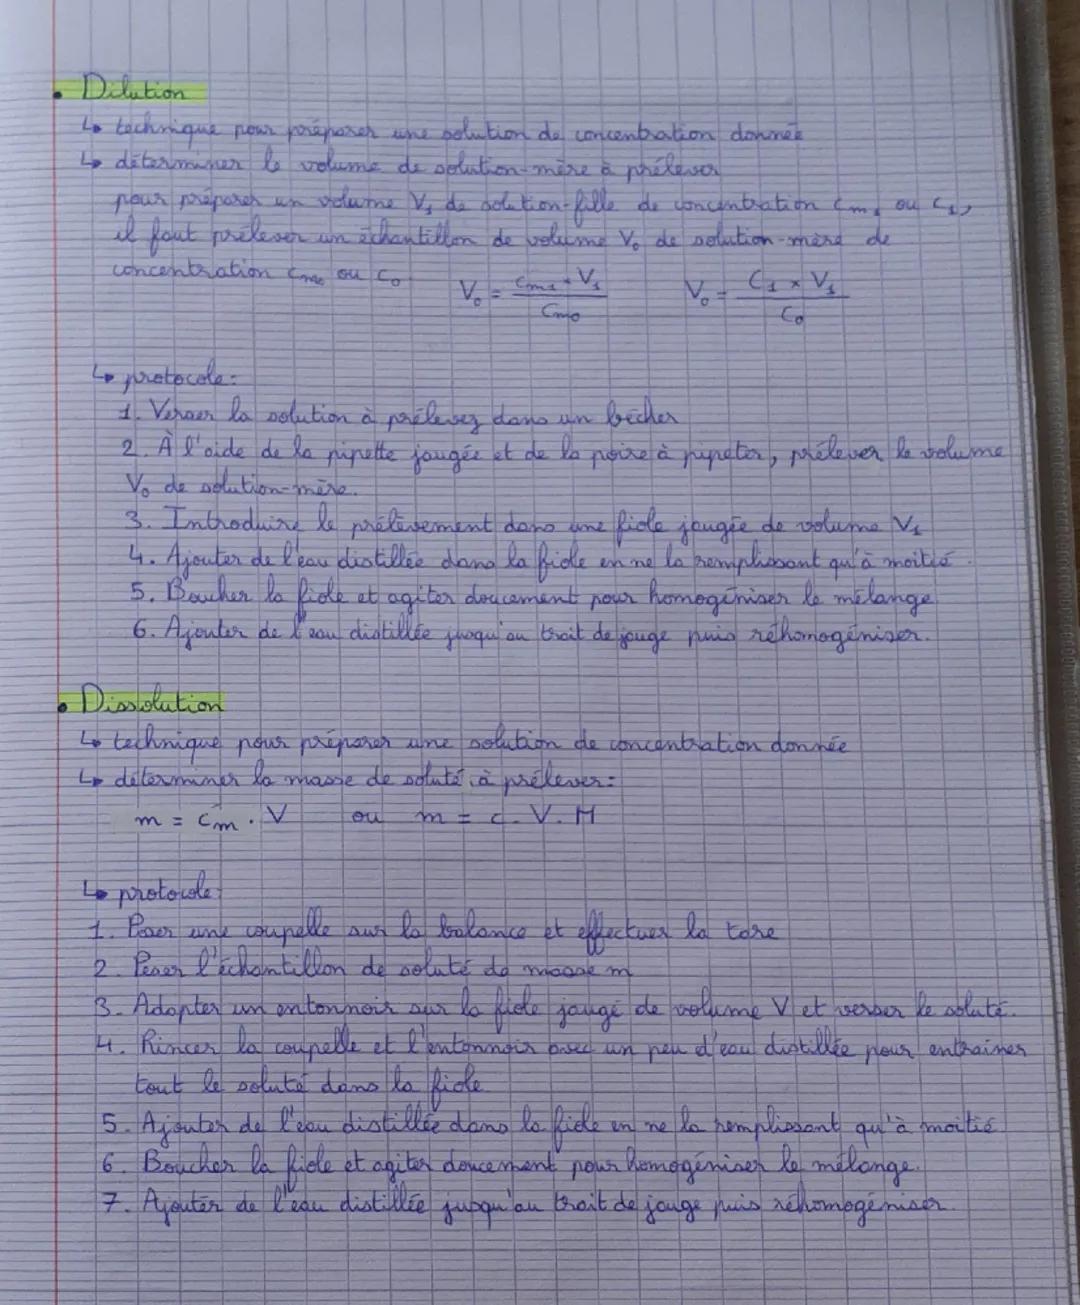 • Dilution
↳ technique pour préparer une solution de concentration donnée
↳ déterminer le volume de solution-mère à prélever
pour préparer un volume V₁ de solution-fille de concentration cm₁ ou c₁,
il faut prélever un échantillon de volume V₀ de solution-mère de
concentration cm₀ ou c₀. V₀ = (cm₁ × V₁)/cm₀ V₀ = (C₁ × V₁)/C₀
↳ protocole:
1. Verser la solution à prélevez dans un bécher
2. À l'aide de la pipette jaugée et de la poire à pipeter, prélever le volume
V₀ de solution-mère.
3. Introduire le prélèvement dans une fiole jaugée de volume V₁
4. Ajouter de l'eau distillée dans la fiole en ne la remplissant qu'à moitié.
5. Boucher la fiole et agiter doucement pour homogéniser le mélange
6. Ajouter de l'eau distillée jusqu'au trait de jauge puis réhomogéniser.
• Dissolution
↳ technique pour préparer une solution de concentration donnée
↳ déterminer la masse de soluté à prélever:
m = cm . V ou m = c . V . M
↳ protocole:
1. Poser une coupelle sur la balance et effectuer la tare
2. Peser l'échantillon de soluté de masse m
3. Adapter un entonnoir sur la fiole jaugé de volume V et verser le soluté.
4. Rincer la coupelle et l'entonnoir avec un peu d'eau distillée pour entrainer
tout le soluté dans la fiole
5. Ajouter de l'eau distillée dans la fiole en ne la remplissant qu'à moitié
6. Boucher la fiole et agiter doucement pour homogéniser le mélange.
7. Ajouter de l'eau distillée jusqu'au trait de jauge puis réhomogéniser.